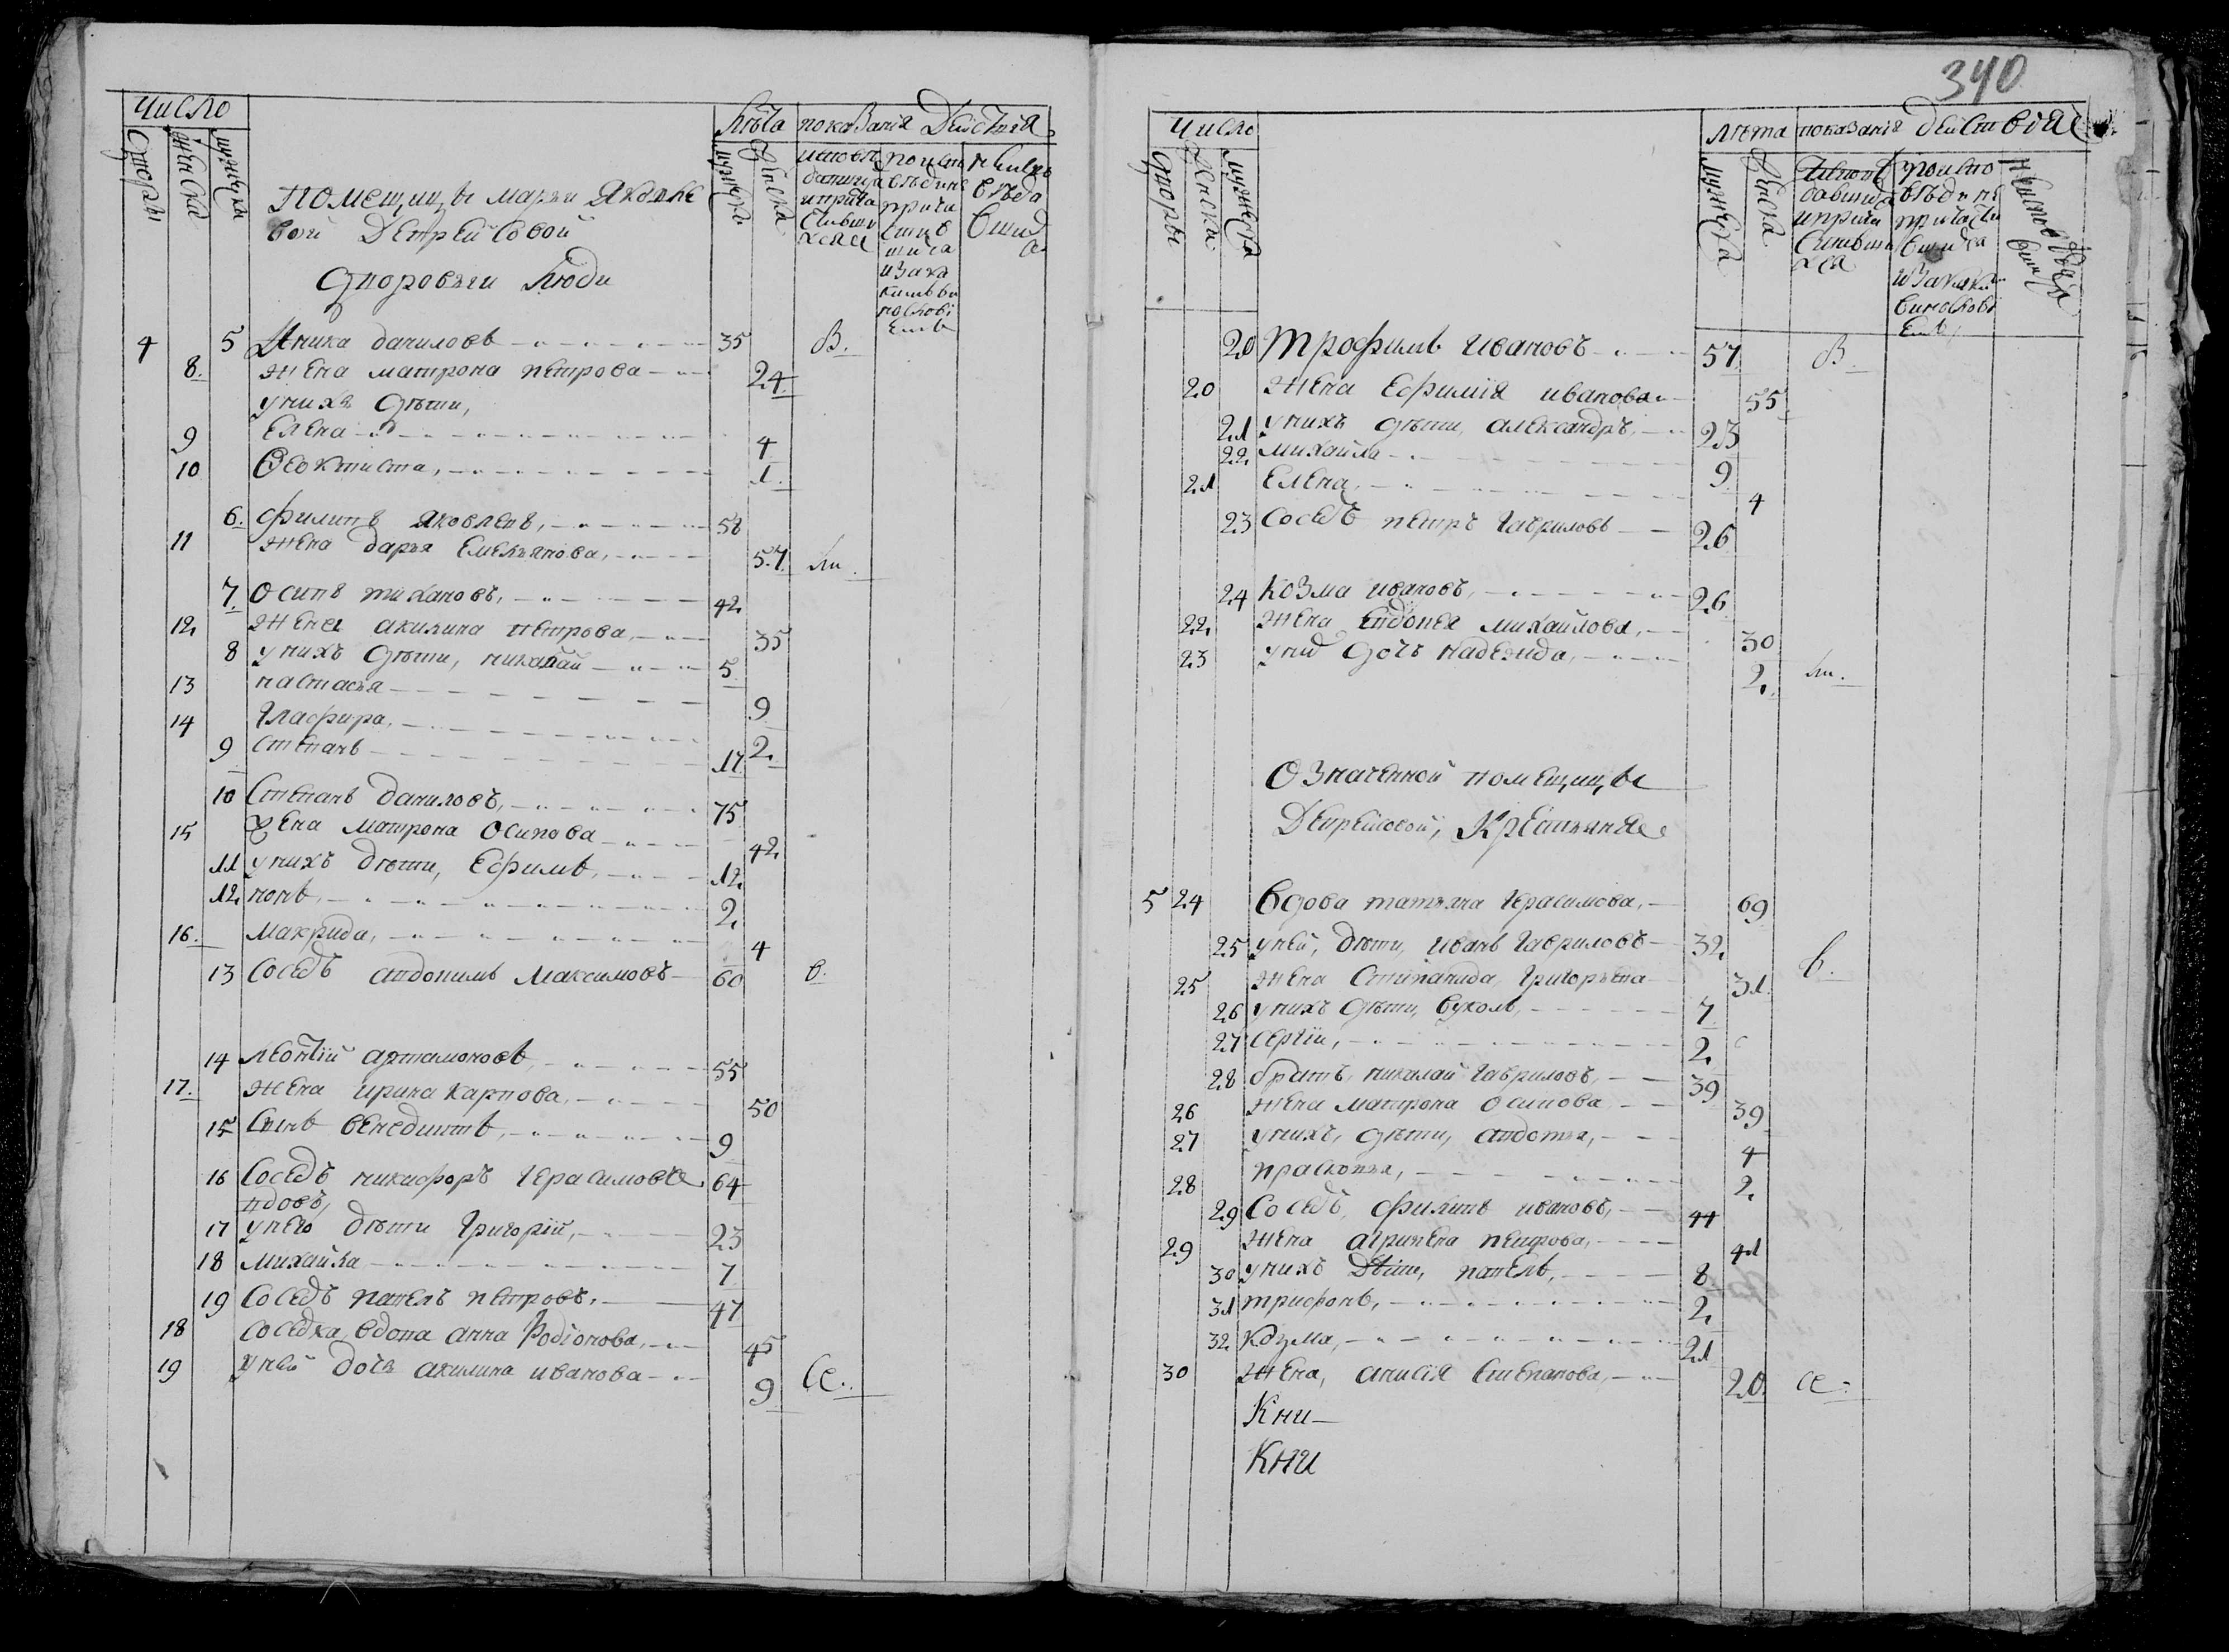 число
лѣта показанія Действія
дворы
женска
мужеска
мужеска
женска
помещицы марьи Яковле
вой Депрейсовой
дворовыя люди
4 5 Аника даниловъ 35 В.
8. жена матрона петрова 24
у нихъ дѣти,
9 Елена 4
10 Ѳеоктиста, 1.
6. филипъ яковлевъ, 58
11 жена дарья Емельянова, 57 ли.
7. Осипъ тихановъ, 42
12 жена акилина петрова, 35
8 у нихъ дѣти, николай 5
13 настасья 9
14 глафира, 2.
9 степанъ 17
10 Степанъ даниловъ, 75
15 жена матрона Осипова 42
11 у нихъ дѣти, Ефимъ, 12
12 попъ, 2
16. макрида, 4
13 Соседъ андонимъ максимовъ 60 в.
14 леонтїй артамоновъ, 55
17. жена ирина карпова, 50
15 Сынъ венедиктъ, 9
16 Соседъ никифоръ герасимовъ 64
вдовъ,
17 у него дѣти григорїй, 23
18 михайла 7
19 Соседъ павелъ петровъ, 47
18 соседка вдова анна Родїонова, 45
19 у ней дочь акилина иванова 9 се.
340
число
лѣта показанія действія
дворы
женска
мужеска
мужеска
женска
20 трофимъ ивановъ 57 В.
20 жена Ефимїя иванова 55
21 у нихъ дѣти, александръ, 23
22 михайла 9
21 Елена, 4
23 соседъ петръ гавриловъ 26
24 козма ивановъ, 26
22 жена Евдокея михайлова, 30
23 у ний дочь надежда, 2. ли.
Означенной помещицы
Депрейсовой, Крестьяняе
5 24 вдова татьяна герасимова, 69
25 у ней, дѣти, иванъ гавриловъ 32 в.
25 жена Степанида, григорьева 31
26 у нихъ дѣти, вуколъ, 7
27 сергїй, 2.
28 братъ, николай гавриловъ, 39
26 жена матрона осипова 39
27 у нихъ, дѣти, авдотья, 4
28 прасковья, 2.
29 Соседъ, филипъ ивановъ, 44
29 жена агрипена петрова, 41
30 у нихъ дѣти, павелъ, 8
31 трифонъ, 2.
32 козма, 21
30 жена, анисїя степанова, 20. се.
Кни
Кни